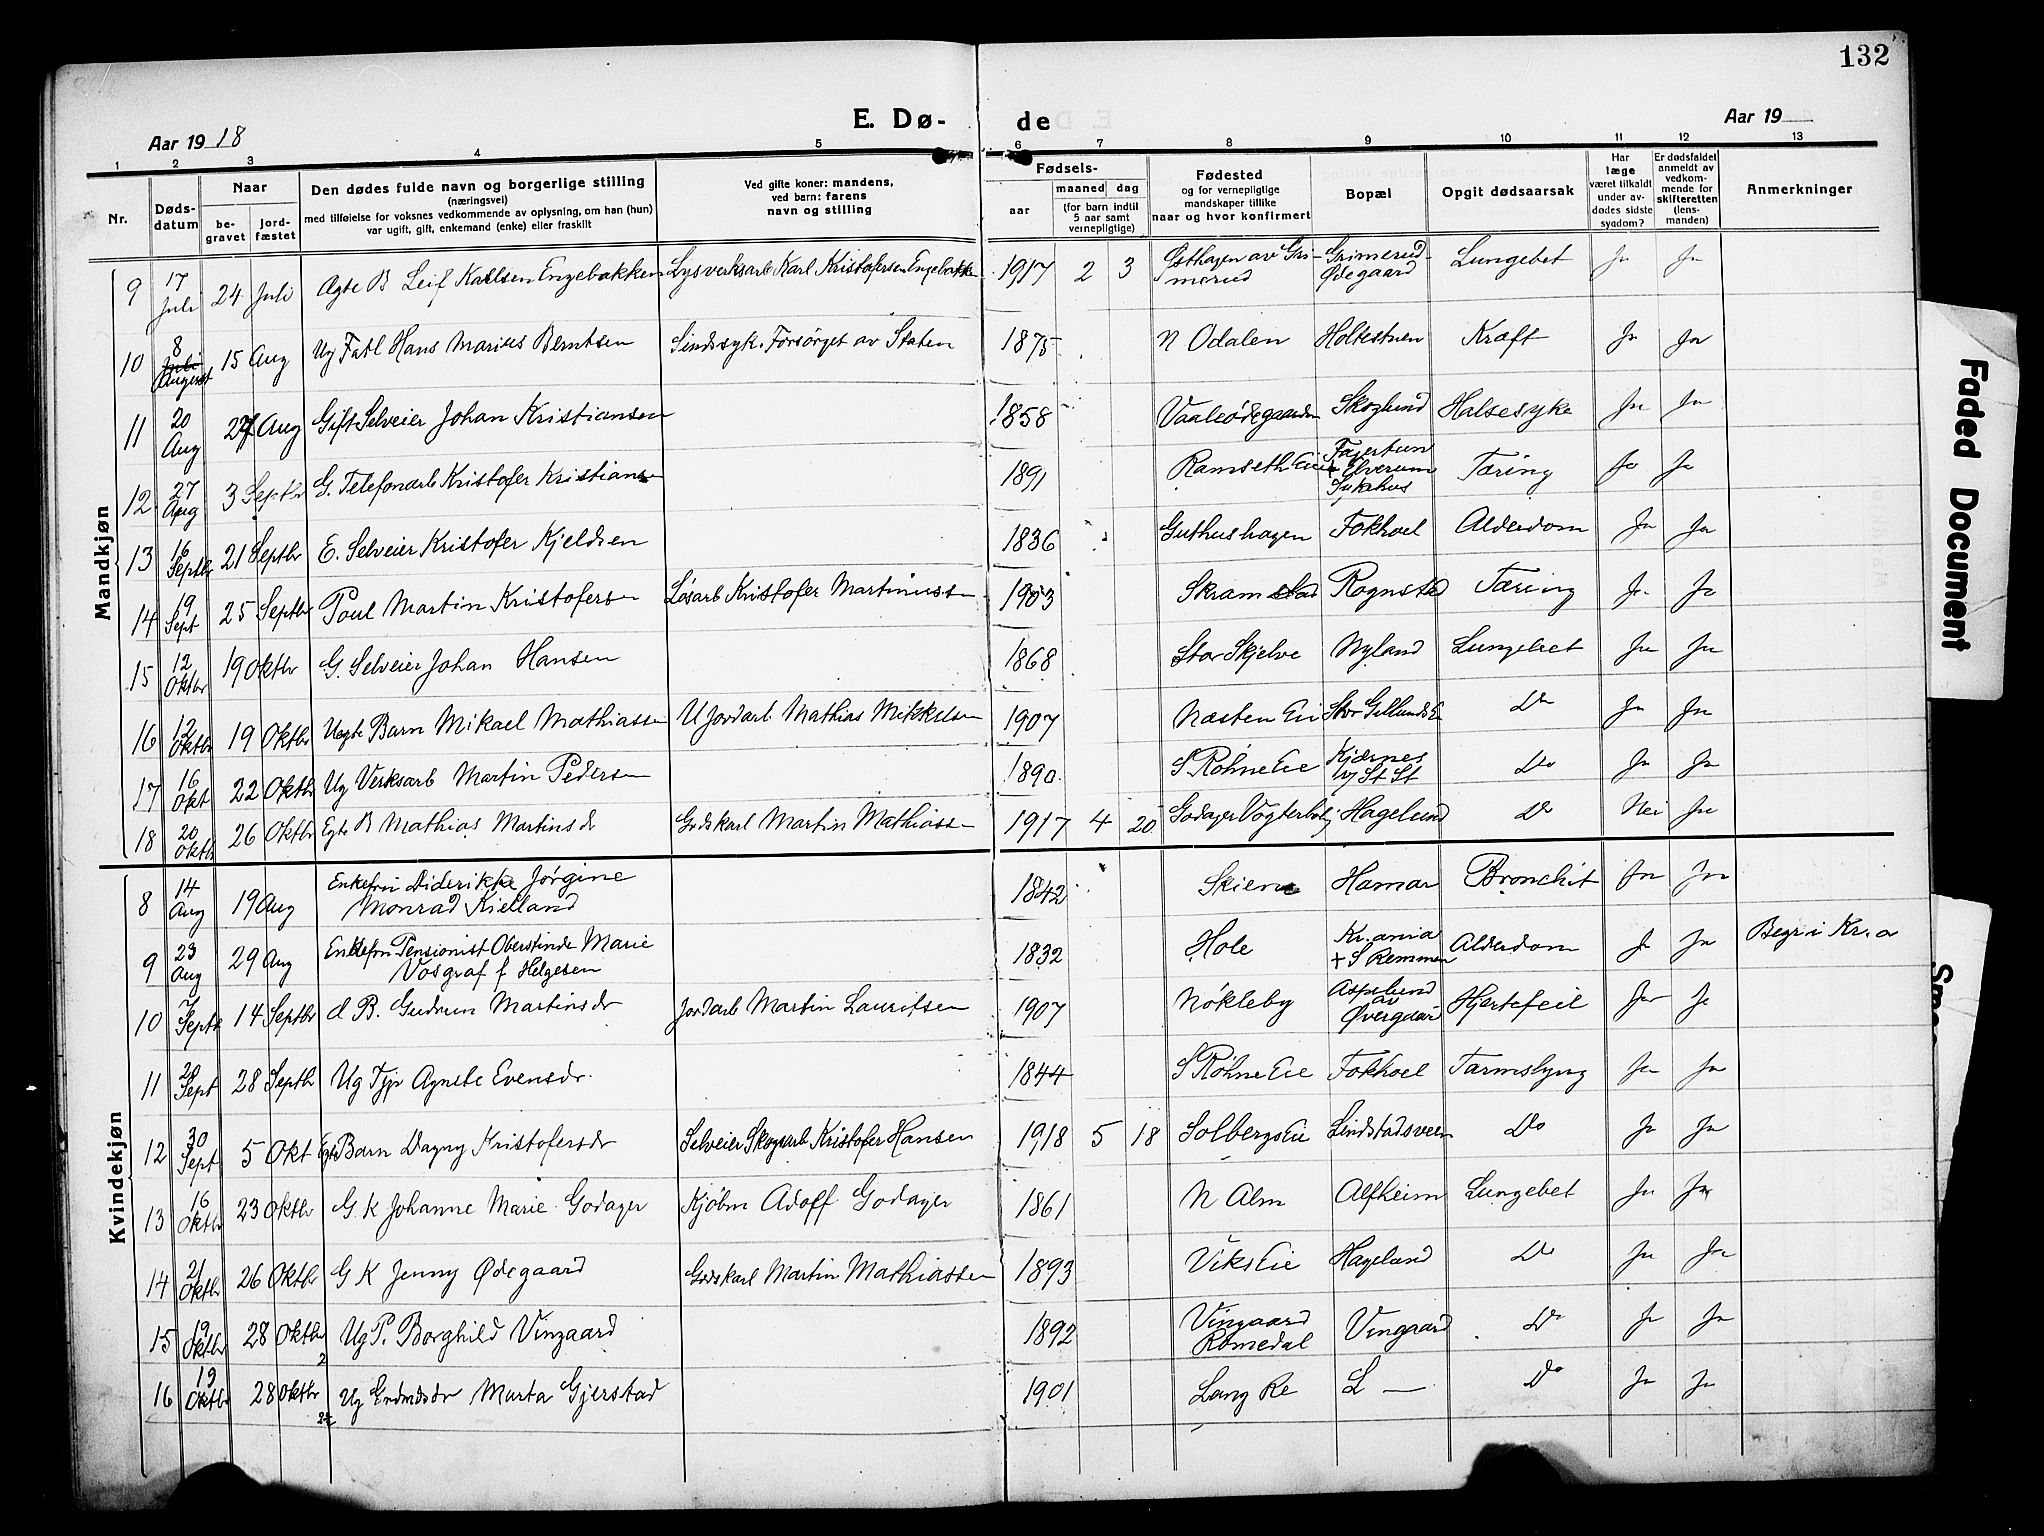 132
E. Dø- de
Aar 19 18
Aar 19
1 2 3 4 5 6 7 8 9 10 11 12 13
Nr.
Døds-
datum
Naar
be-
gravet
jord-
fæstet
Den dødes fulde navn og borgerlige stilling
(næringsvei)
med tilføielse for voksnes vedkommende av oplysning, om han (hun)
var ugift, gift, enkemand (enke) eller fraskilt
Ved gifte koner: mandens,
ved barn: farens
navn og stilling
Fødsels-
aar
maaned dag
(for barn indtil
5 aar samt
vernepligtige)
Fødested
og for vernepligtige
mandskaper tillike
naar og hvor konfirmert
Bopæl
Opgit dødsaarsak
Har
læge
været tilkaldt
under av-
dødes sidste
sygdom?
Er dødsfaldet
anmeldt av
vedkom-
mende for
skifteretten
(lens-
manden)
Anmerkninger
Mandkjøn
9 17 Juli 24 Juli Ægte B Leif Karlsen Engebakken Lysverksarb Karl Kristofersen Engebakken 1917 2 3 Østhagen av Gri-merud Grimerud-Ødegaard Lungebet Ja Ja
10 8 Juli August 15 Aug Ug Fatl Hans Marius Berntsen Sindssyk. Forsørget av Staten 1875 N Odalen Holtestuen Kræft Ja Ja
11 20 Aug 27 Aug Gift Selveier Johan Kristiansen 1858 Vaaleødegaarden Skoglund Halsesyke Ja Ja
12 27 Aug 3 Septbr G. Telefonarb Kristofer Kristiansen 1891 Ramseth Eie Fagertun + Elverum Sykehus Tæring Ja Ja
13 16 Septbr 21 Septbr E. Selveier Kristofer Kjeldsen 1836 Guthushagen Fokhoel Alderdom Ja Ja
14 19 Sept 25 Septbr Poul Martin Kristofersen Løsarb Kristofer Martinussen 1903 Skramstad Rognstad Tæring Ja Ja
15 12 Oktbr 19 Oktbr G. Selveier Johan Hansen 1868 Stor Skjelve Nyland Lungebet Ja Ja
16 12 Oktbr 19 Oktbr Uegte Barn Mikael Mathiassen U Jordarb Mathias Mikkelsen 1907 Næsten Eie Stor Gillunds E Do Ja Ja
17 16 Okt 22 Oktbr Ug Verksarb Martin Pedersen 1890 S Røhne Eie Kjernes v St St Do Ja Ja
18 20 Oktbr 26 Oktbr Egte B Mathias Martinsdr Godskarl Martin Mathiassen 1917 4 20 Godager Vogterbolig Hagelund Do Nei Ja
Kvindekjøn
8 14 Aug 19 Aug Enkefru Diderikke Jørgine Monrad Kielland 1842 Skien Hamar Bronchit Ja Ja
9 23 Aug 29 Aug Enkefru Pensionist Oberstinde Marie Vosgraf f Helgesen 1832 Hole Kr.ania + S Remmen Alderdom Ja Ja Begr. i Kr.a
10 7 Septr 14 Septbr d B. Gudrun Martinsdr Jordarb Martin Lauritsen 1907 Nøkleby Aspelund av Øvergaard Hjertefeil Ja Ja
11 20 Sept 28 Septbr Ug Tjp Agnete Evensdr. 1844 S Røhne Eie Fokhoel Tarmslyng Ja Ja
12 30 Sept 5 Okt Egt Barn Dagny Kristofersdr Selveier Skogsarb Kristofer Hansen 1918 5 18 Solbergs Eie Lindstadsveen Do Ja Ja
13 16 Oktbr 23 Oktbr G. K Johanne Marie Godager Kjøbm Adolf Godager 1861 N Alm Alfheim Lungebet Ja Ja
14 21 Oktbr 26 Oktbr G K Jenny Ødegaard Godskarl Martin Mathiassen 1893 Viks Eie Hagelund Do Ja Ja
15 19 Oktbr 28 Oktbr Ug P. Borghild Vingaard 1892 Vingaard Romedal Vingaard Do Ja Ja
16 19 Oktbr 28 Oktbr Ug Grdmdsdr Marta Gjerstad 1901 Lang Re L — Do Ja Ja
Faded Document